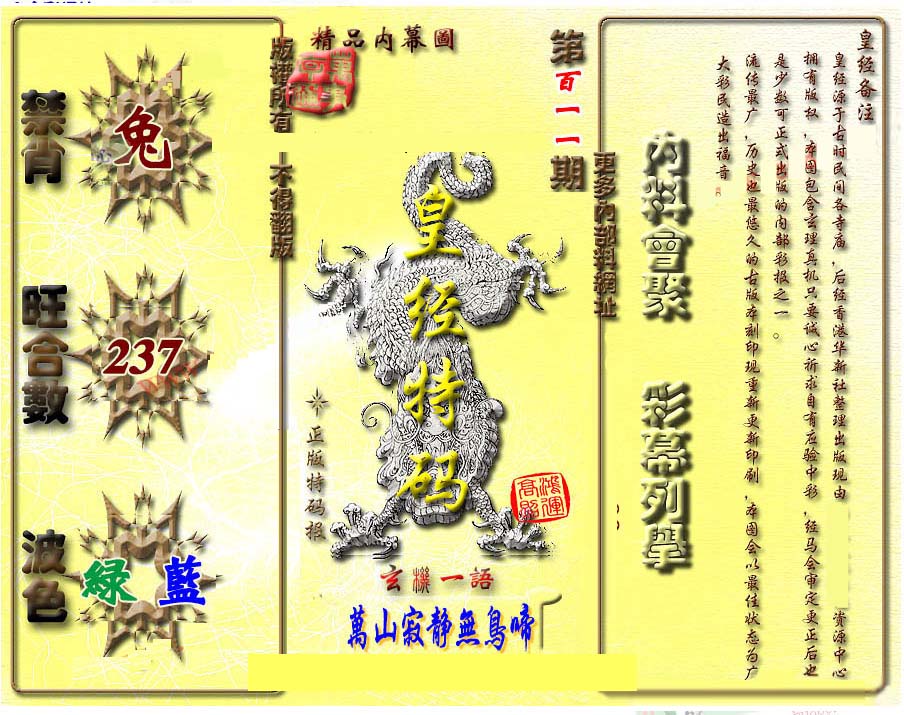 精品內幕圖
第百一一期
版權所有
不得翻版
禁肖
兔
旺合數
237
波色
綠 藍
皇经特码
正版特码报
鴻運
高照
玄機一語
萬山寂静無鳥啼
更多內部料網址
內料會聚
彩幕列舉
皇经备注
皇经源于古时民间各寺庙，后经香港华新社整理出版现由 资源中心
拥有版权，本图包含玄理真机只要诚心祈求自有应验中彩，经马会审定更正后也
是少数可正式出版的内部彩报之一。
流传最广，历史也最悠久的古版本刻印现重新更新印刷，本图会以最佳状态为广
大彩民造出福音